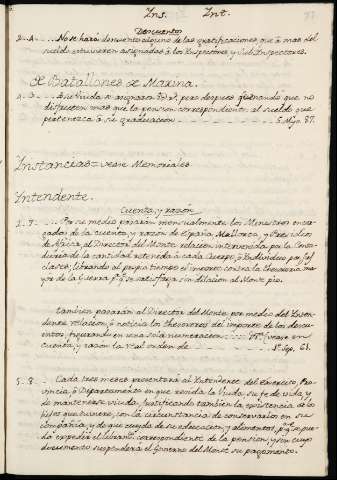 Ins. Int.
Descuento
2..4..... No se hará descuento alguno de las gratificaciones que à mas del
sueldo estuvieren asignadas à los Inspectores y Sub Inspectores.
de Batallones de Marina.
à su viuda se asignaron pero despues que no
disfruten mas que la pension correspondiente al sueldo que
pertenezca à su graduacion 5. Mzo. 87.
Instancias = vease Memoriales
Intendente.
Cuenta y razón
2..7..... Por su medio pasarán mensualmente los Ministros encar-
gados de la cuenta y razon de España, Mallorca, y Presidios
de Africa al Director del Monte relacion intervenida por la Conta-
duria de la cantidad retenida à cada Cuerpo, ò Individuo por
clases; librando al propio tiempo el importe contra la Thesoreria ma-
yor de la Guerra pa. q. se satisfaga sin dilacion al Monte pio.
tambien pasarán al Director del Monte por medio del Inten-
dente relacion, ò noticia los thesoreros del importe de los descuen-
tos, figurando en una sola numeracion vease en
cuenta, y razon la real orden de 1º. Sep. 61.
5..8... Cada tres meses presentará al Intendente del Exercito, Pro-
vincia, ò Departamento en que resida la Viuda su fe de vida, y
de mantenerse viuda, justificando tambien la existencia de los
hijos que tuviere, con la circunstancia de conservarlos en su
compañia, y de que cuyda de su educacion, y alimentos, pa. q. se pue-
da expedir el libramto. correspondiente de la pension, y sin cuyo
documento suspenderá el Govierno del Monte su pagamento.